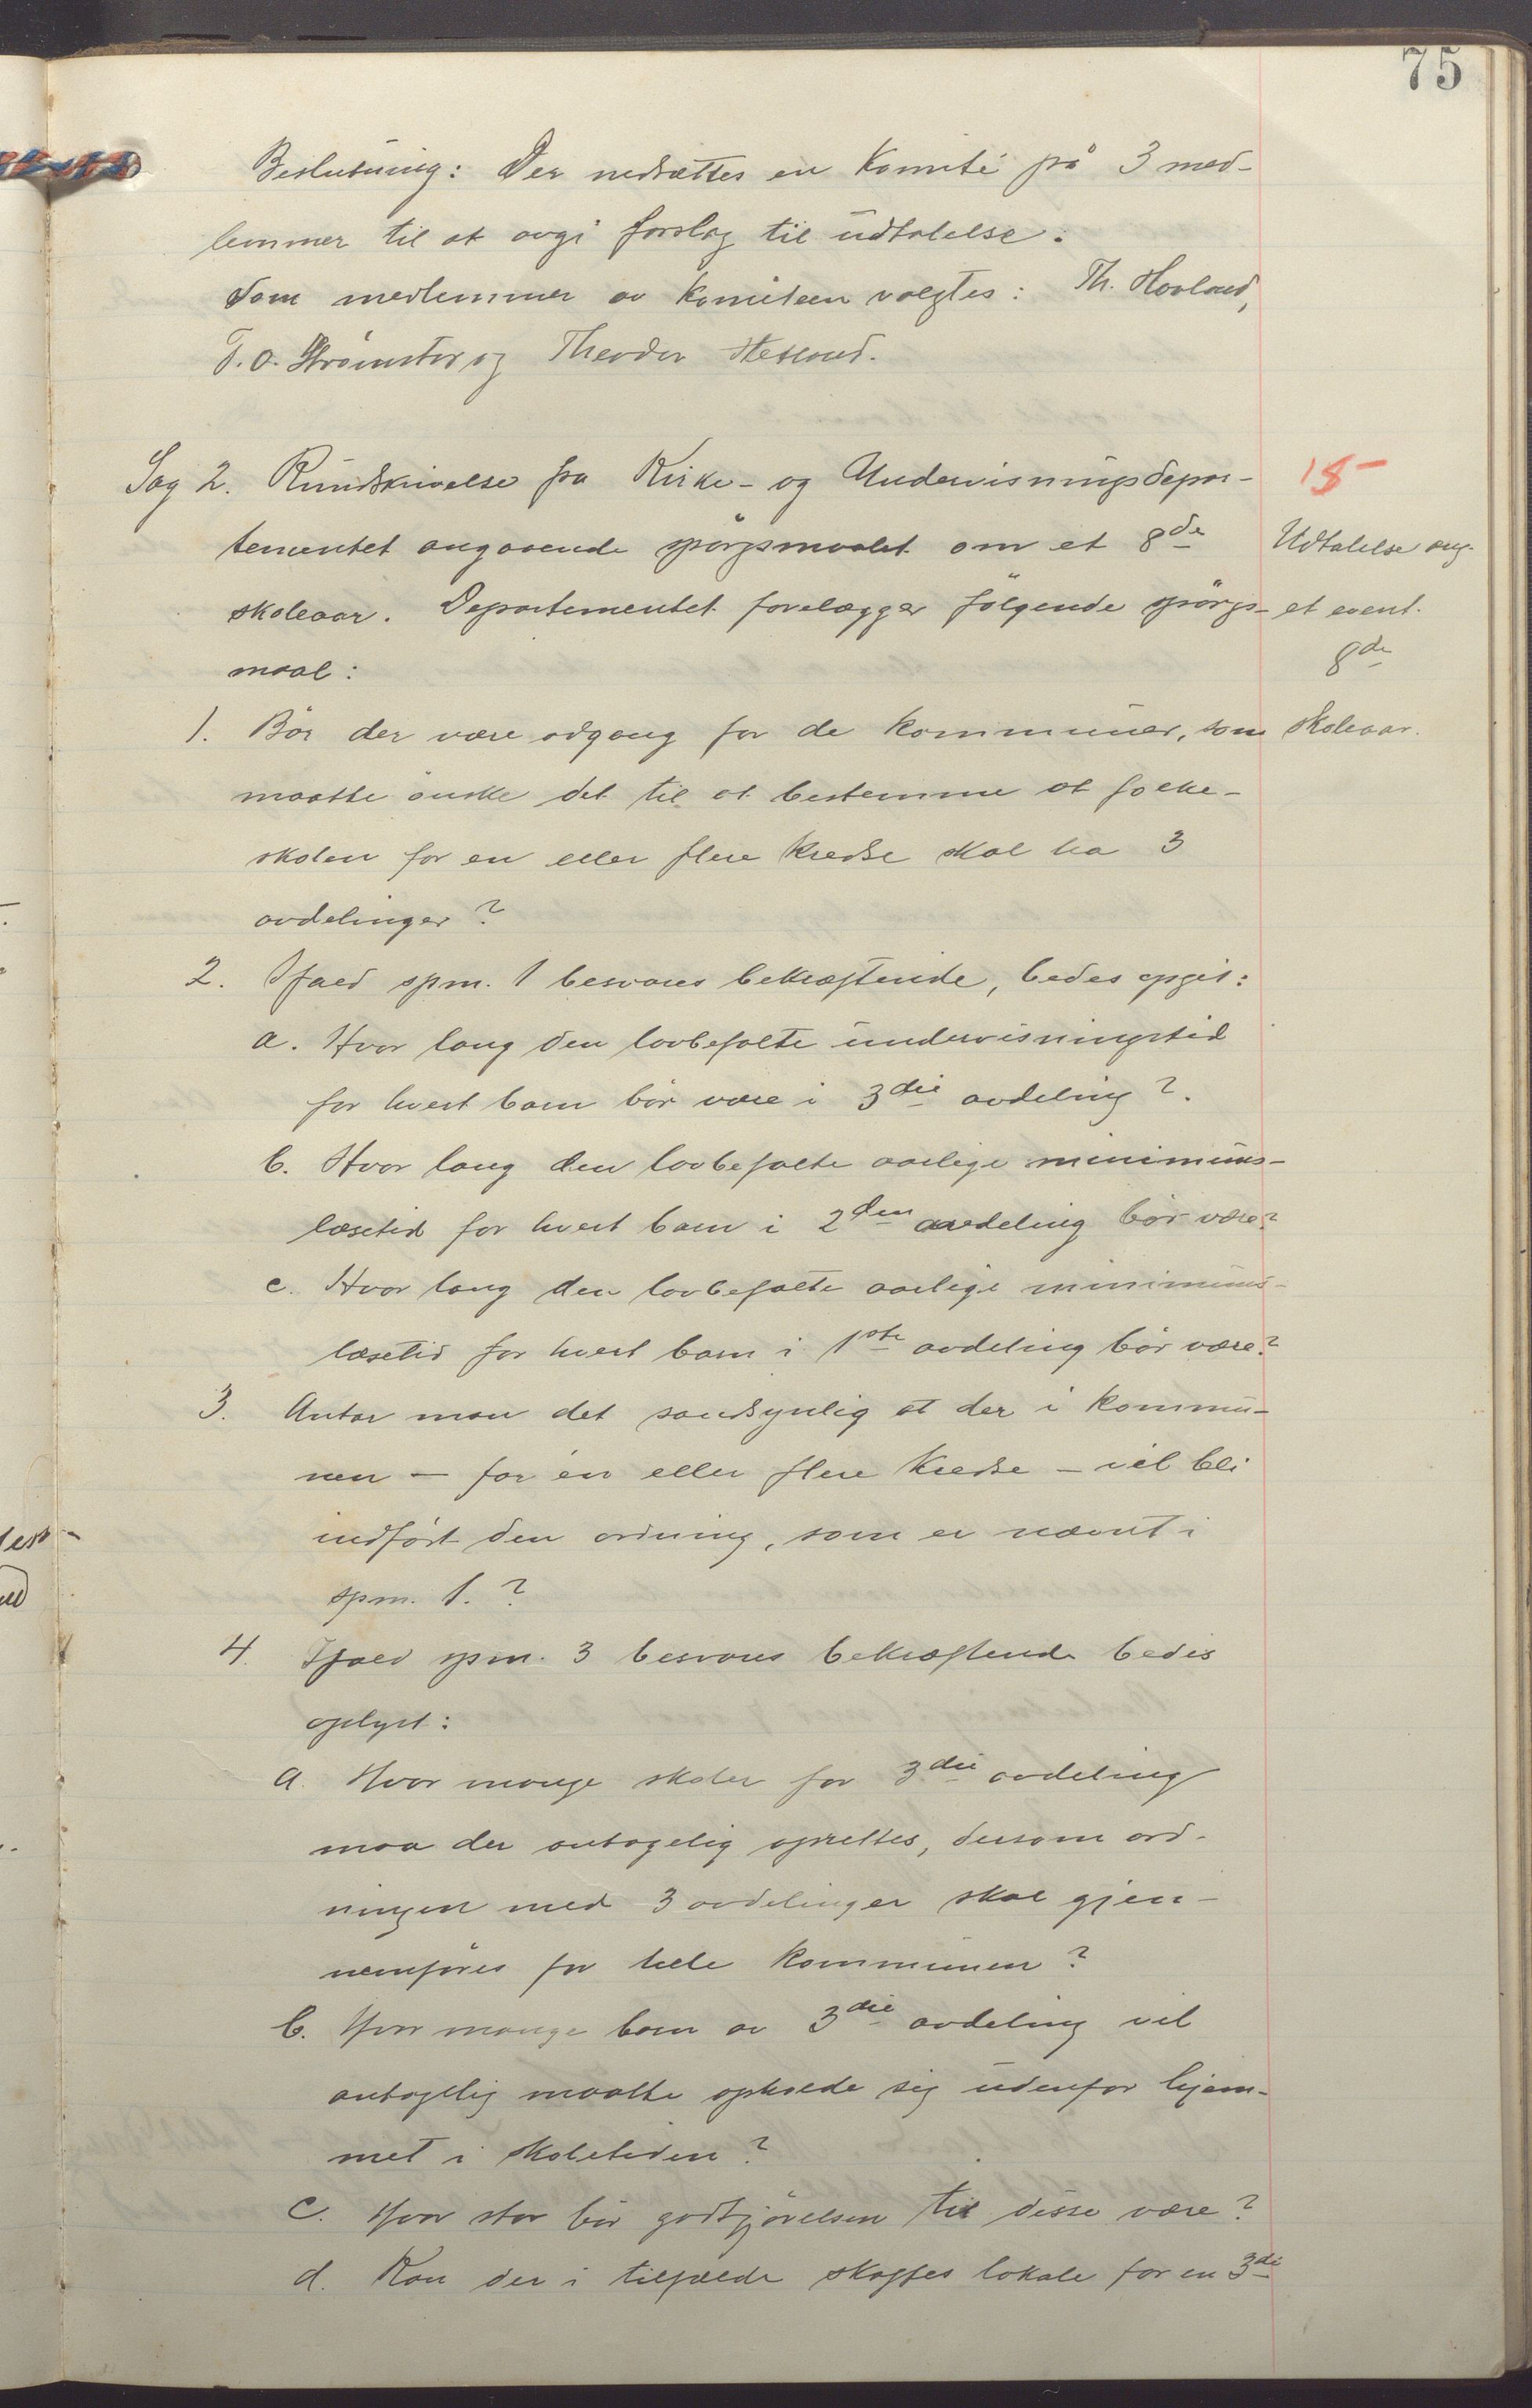 75
Beslutning: Der nedsættes en Komité på 3 med-
lemmer til at avgi forslag til udtalelse.
Som medlemmer av komiteen valgtes: Th. Hovland,
T. O. og Theodor
Sag 2. Rundskrivelse fra Kirke- og Undervisningsdepar-
tementet angaaende spörgsmaalet om et 8de
skoleaar. Departementet forelægger fölgende spörgs-
maal:
15-
Udtalelse ang.
et event.
8de
skoleaar.
1. Bör der være adgang for de kommuner, som
maatte önske det til at bestemme at folke-
skolen for en eller flere kredse skal ha 3
avdelinger?
2. Ifald spm. 1 besvares bekræftende, bedes opgit:
a. Hvor lang den lovbefalte undervisningstid
for hvert barn bör være i 3die avdeling?
b. Hvor lang den lovbefalte aarlige minimums-
læsetid for hvert barn i 2den avdeling bör være?
c. Hvor lang den lovbefalte aarlige minimums-
læsetid for hvert barn i 1ste avdeling bör være?
3. Antar man det sandsynlig at der i kommu-
nen – for én eller flere kredse – vil bli
indfört den ordning, som er nævnt i
spm. 1.?
4. Ifald spm. 3 besvares bekræftende bedes
oplyst:
a. Hvor mange skoler for 3die avdeling
maa der antagelig oprettes, dersom ord-
ningen med 3 avdelinger skal gjen-
nemföres for hele kommunen?
b. Hvor mange barn av 3die avdeling vil
antagelig maatte opholde sig udenfor hjem-
met i skoletiden?
c. Hvor stor bör godtgjörelsen til disse være?
d. Kan der i tilfælde skaffes lokale for en 3die